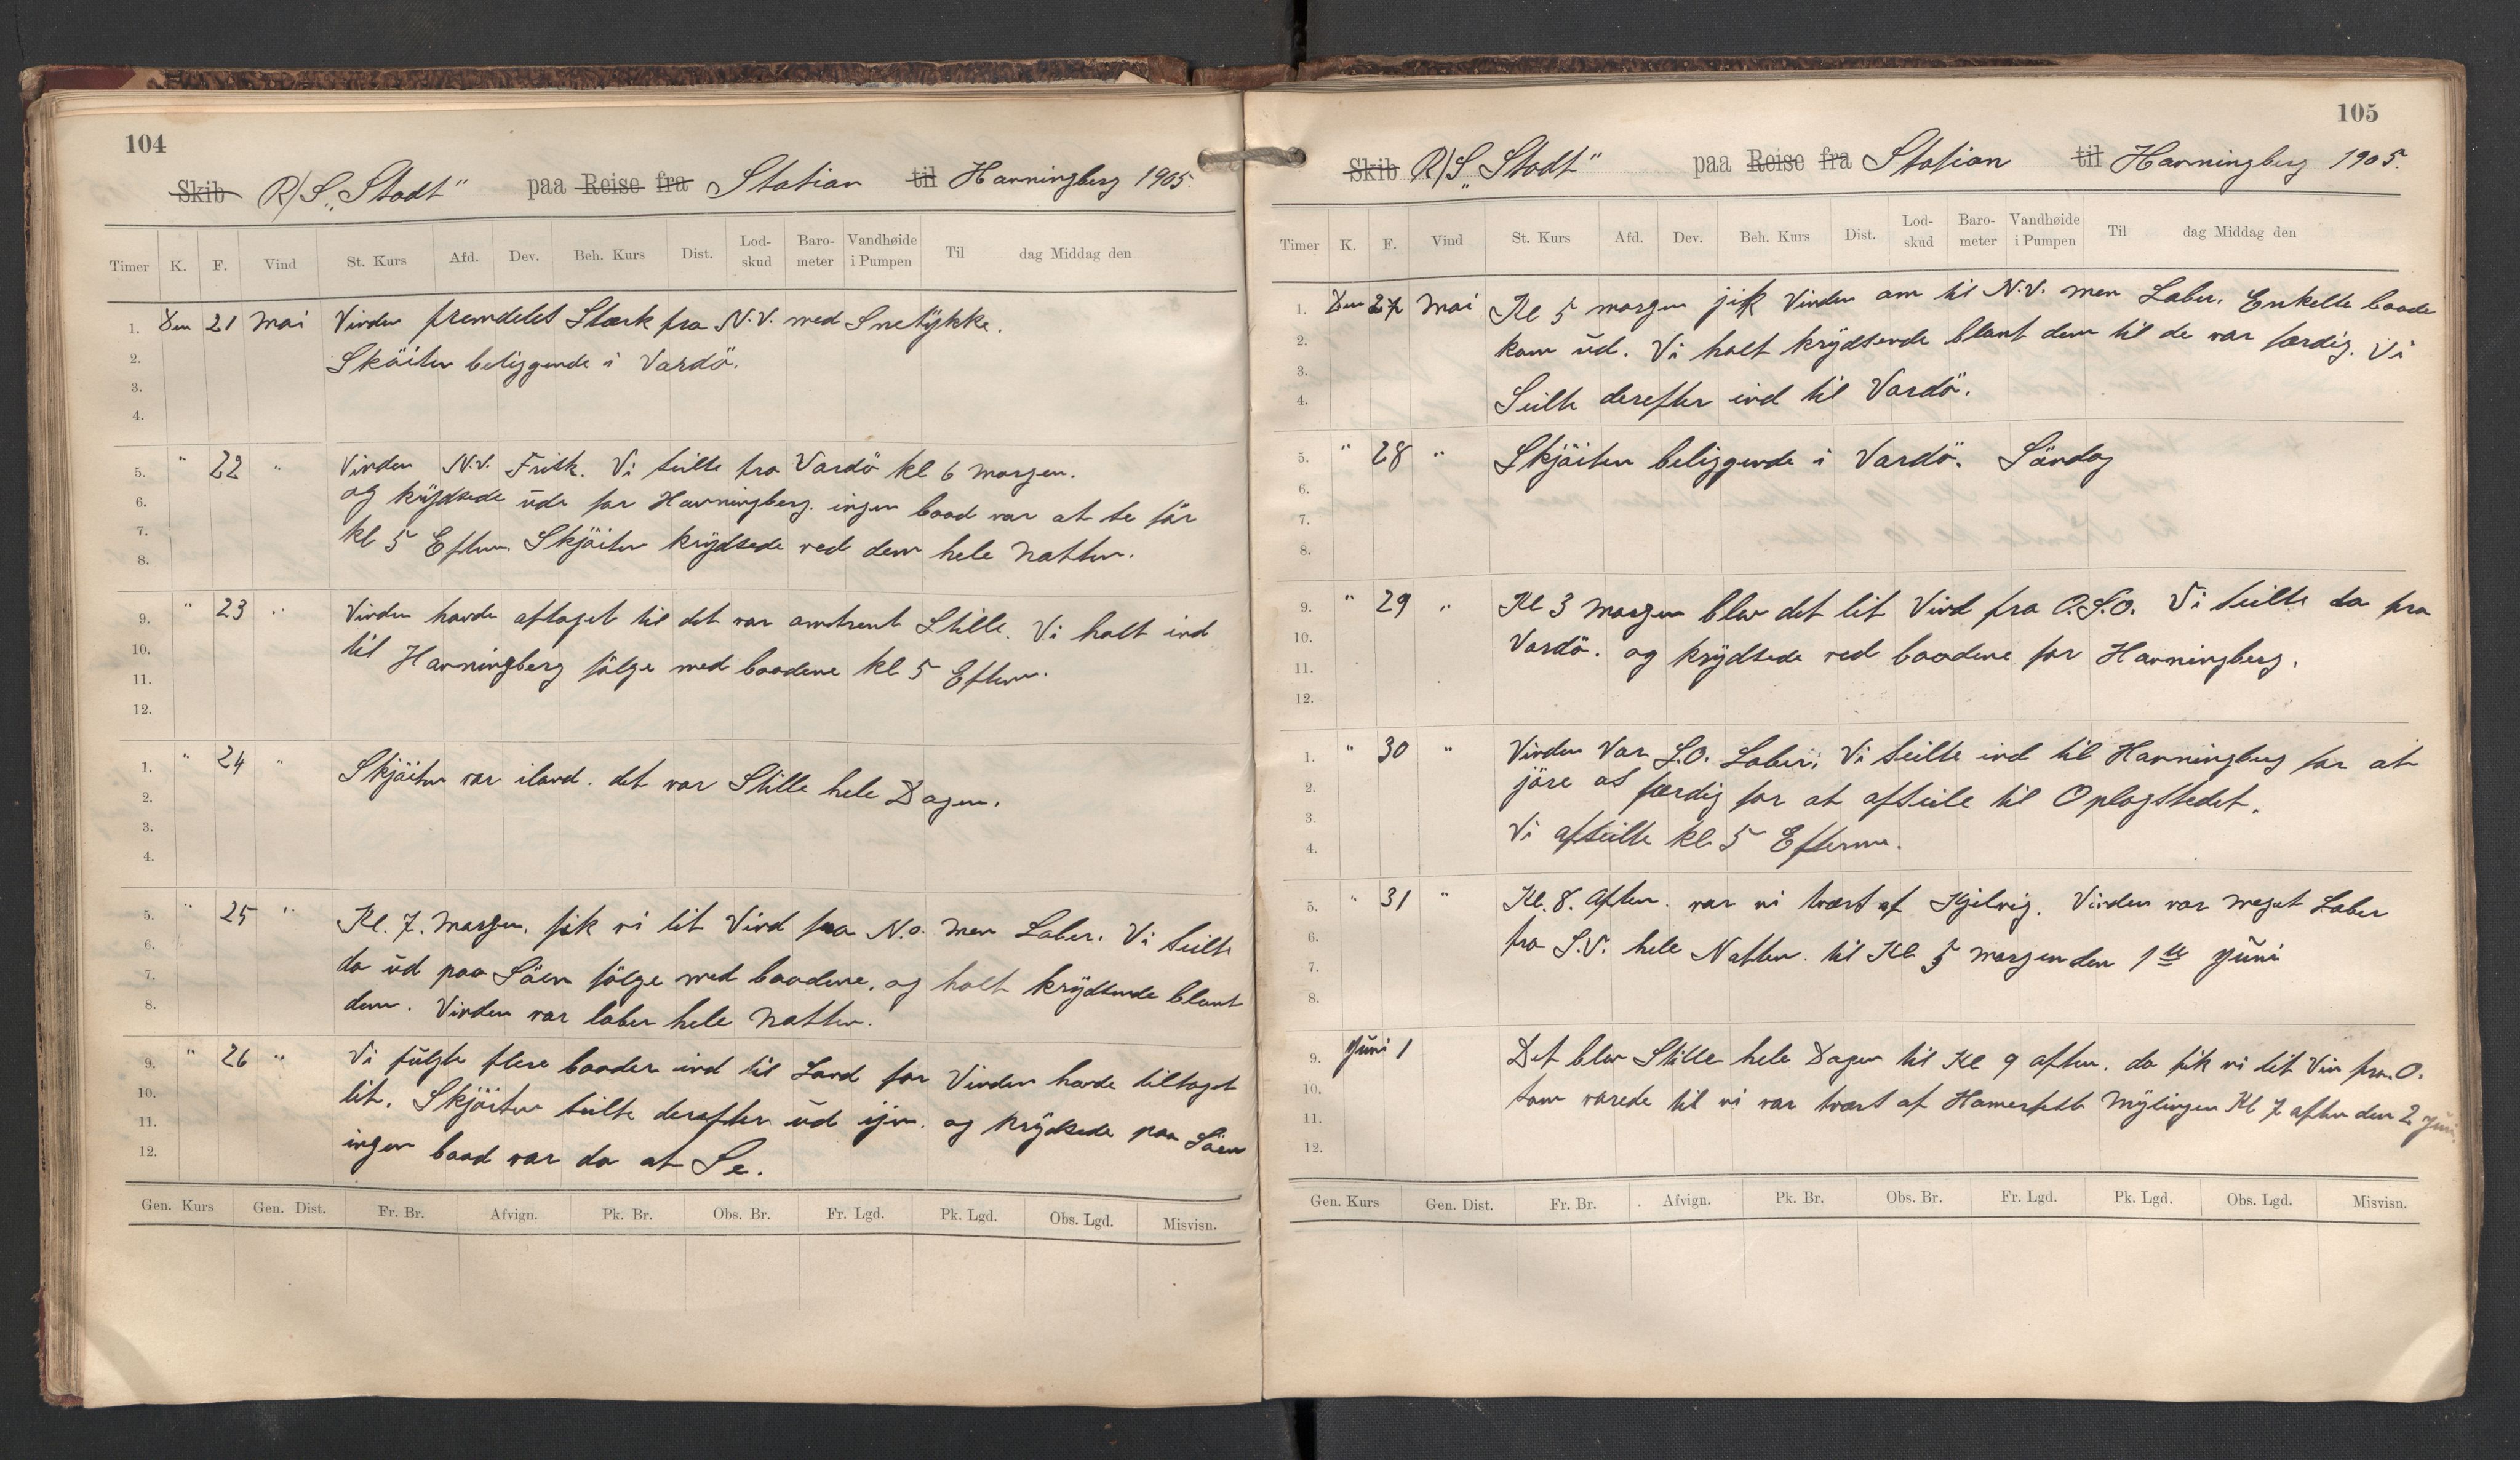 104
Skib R/S „Stadt“ paa Reise fra Station til Havningberg 1905.
Timer K. F. Vind St. Kurs Afd. Dev. Beh. Kurs Dist. Lod-skud Baro-meter Vandhøide i Pumpen Til dag Middag den
1. Den 21 Mai Vinden fremdeles Stærk fra N.V. med Snetykke.
2. Sköiten beliggende i Vardö.
3.
4.
5. " 22 " Vinden N.V. Frisk. Vi seilte fra Vardö kl 6 morgen.
6. og krydsede ude for Havningberg. ingen baad var at se för
7. kl 5 Efterm. Skjöiten krydsede ved dem hele Natten.
8.
9. " 23 " Vinden havde aftaget til det var omtrent Stille. Vi holt ind
10. til Havningberg fölge med baadene kl 5 Efterm.
11.
12.
1. " 24 " Skjöiten var iland. det var Stille hele Dagen.
2.
3.
4.
5. " 25 " Kl. 7. morgen. fik vi lit Vind fra N.O. men Laber. Vi seilte
6. da ud paa Söen fölge med baadene. og holt krydsende blant
7. dem. Vinden var laber hele Natten.
8.
9. " 26 " Vi fulgte flere baader ind til Land for Vinden havde tiltaget
10. lit. Skjöiten seilte derefter ud ijen. og krydsede paa Söen
11. ingen baad var da at Se.
12.
Gen. Kurs Gen. Dist. Fr. Br. Afvign. Pk. Br. Obs. Br. Fr. Lgd. Pk. Lgd. Obs. Lgd. Misvisn.
105
Skib R/S „Stadt“ paa Reise fra Station til Havningberg 1905.
Timer K. F. Vind St. Kurs Afd. Dev. Beh. Kurs Dist. Lod-skud Baro-meter Vandhøide i Pumpen Til dag Middag den
1. Den 27 Mai Kl 5 morgen jik Vinden om til N.V. men Laber. Enkelte baade
2. kom ud. Vi holt krydsende blant dem til de var færdig. Vi
3. Seilte derefter ind til Vardö.
4.
5. " 28 " Skjöiten beliggende i Vardö. Söndag
6.
7.
8.
9. " 29 " Kl 3 morgen blev det lit Vind fra O.S.O. Vi seilte da fra
10. Vardö. og krydsede ved baadene for Havningberg.
11.
12.
1. " 30 " Vinden Var S.O. Laber, Vi seilte ind til Havningberg for at
2. jöre os færdig for at afseile til Oplagstedet.
3. Vi afseilte kl 5 Efterm.
4.
5. " 31 " Kl. 8. aften. var vi tvært af Kjelvig. Vinden var meget Laber
6. fra S.V. hele Natten. til Kl 5 morgen den 1ste Juni
7.
8.
9. Juni 1 Det blev Stille hele Dagen til Kl 9 aften. da fik vi lit Vin fra O.
10. som varede til vi var tvært af Hamerfest Mylingen Kl 7 aften den 2 Juni.
11.
12.
Gen. Kurs Gen. Dist. Fr. Br. Afvign. Pk. Br. Obs. Br. Fr. Lgd. Pk. Lgd. Obs. Lgd. Misvisn.